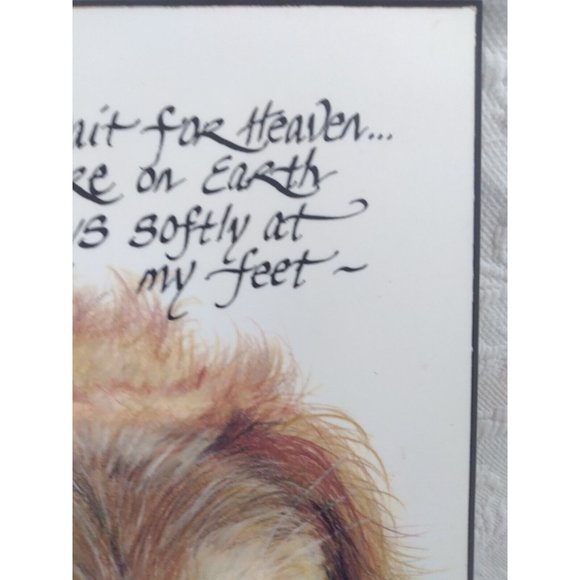 for Heaven...
on Earth
softly at
my feet ~